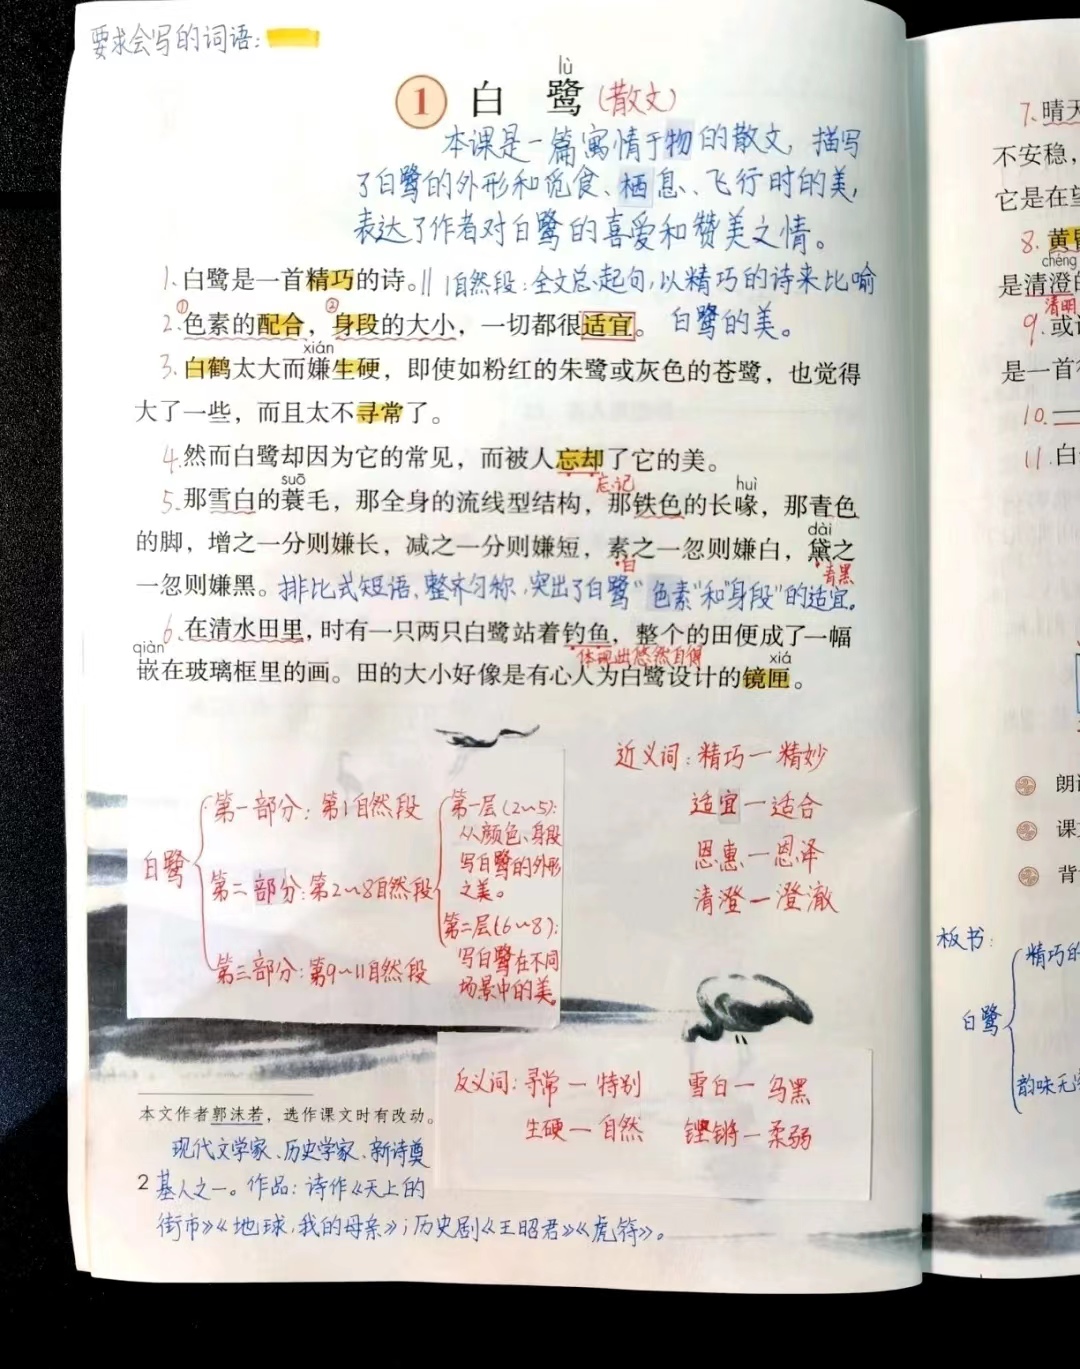 要求会写的词语:
lù
1 白鹭(散文)
本课是一篇寓情于物的散文,描写
了白鹭的外形和觅食、栖息、飞行时的美,
表达了作者对白鹭的喜爱和赞美之情。
1.白鹭是一首精巧的诗。‖ 1自然段:全文总起句,以精巧的诗来比喻
白鹭的美。
① ②
2.色素的配合,身段的大小,一切都很适宜。
xián
3.白鹤太大而嫌生硬,即使如粉红的朱鹭或灰色的苍鹭,也觉得
大了一些,而且太不寻常了。
4.然而白鹭却因为它的常见,而被人忘却了它的美。
忘记
suō huì
5.那雪白的蓑毛,那全身的流线型结构,那铁色的长喙,那青色
dài
的脚,增之一分则嫌长,减之一分则嫌短,素之一忽则嫌白,黛之
白 青黑
一忽则嫌黑。排比式短语,整齐匀称,突出了白鹭"色素"和"身段"的适宜。
6.在清水田里,时有一只两只白鹭站着钓鱼,整个的田便成了一幅
体现出悠然自得
qiàn xiá
嵌在玻璃框里的画。田的大小好像是有心人为白鹭设计的镜匣。
近义词:精巧—精妙
适宜—适合
恩惠—恩泽
清澄—澄澈
白鹭
第一部分:第1自然段
第二部分:第2~8自然段
第一层(2~5):
从颜色、身段
写白鹭的外形
之美。
第二层(6~8):
写白鹭在不同
场景中的美。
第三部分:第9~11自然段
反义词:寻常—特别 雪白—乌黑
生硬—自然 铿锵—柔弱
本文作者郭沫若,选作课文时有改动。
现代文学家、历史学家、新诗奠
基人之一。作品:诗作《天上的
街市》《地球,我的母亲》;历史剧《王昭君》《虎符》。
2
7.晴天
不安稳,
它是在望
8.黄昏
chéng
是清澄的
清明
9.或许
是一首
10.
11.白
朗读
课文
背
板书:
精巧的
白鹭
韵味无